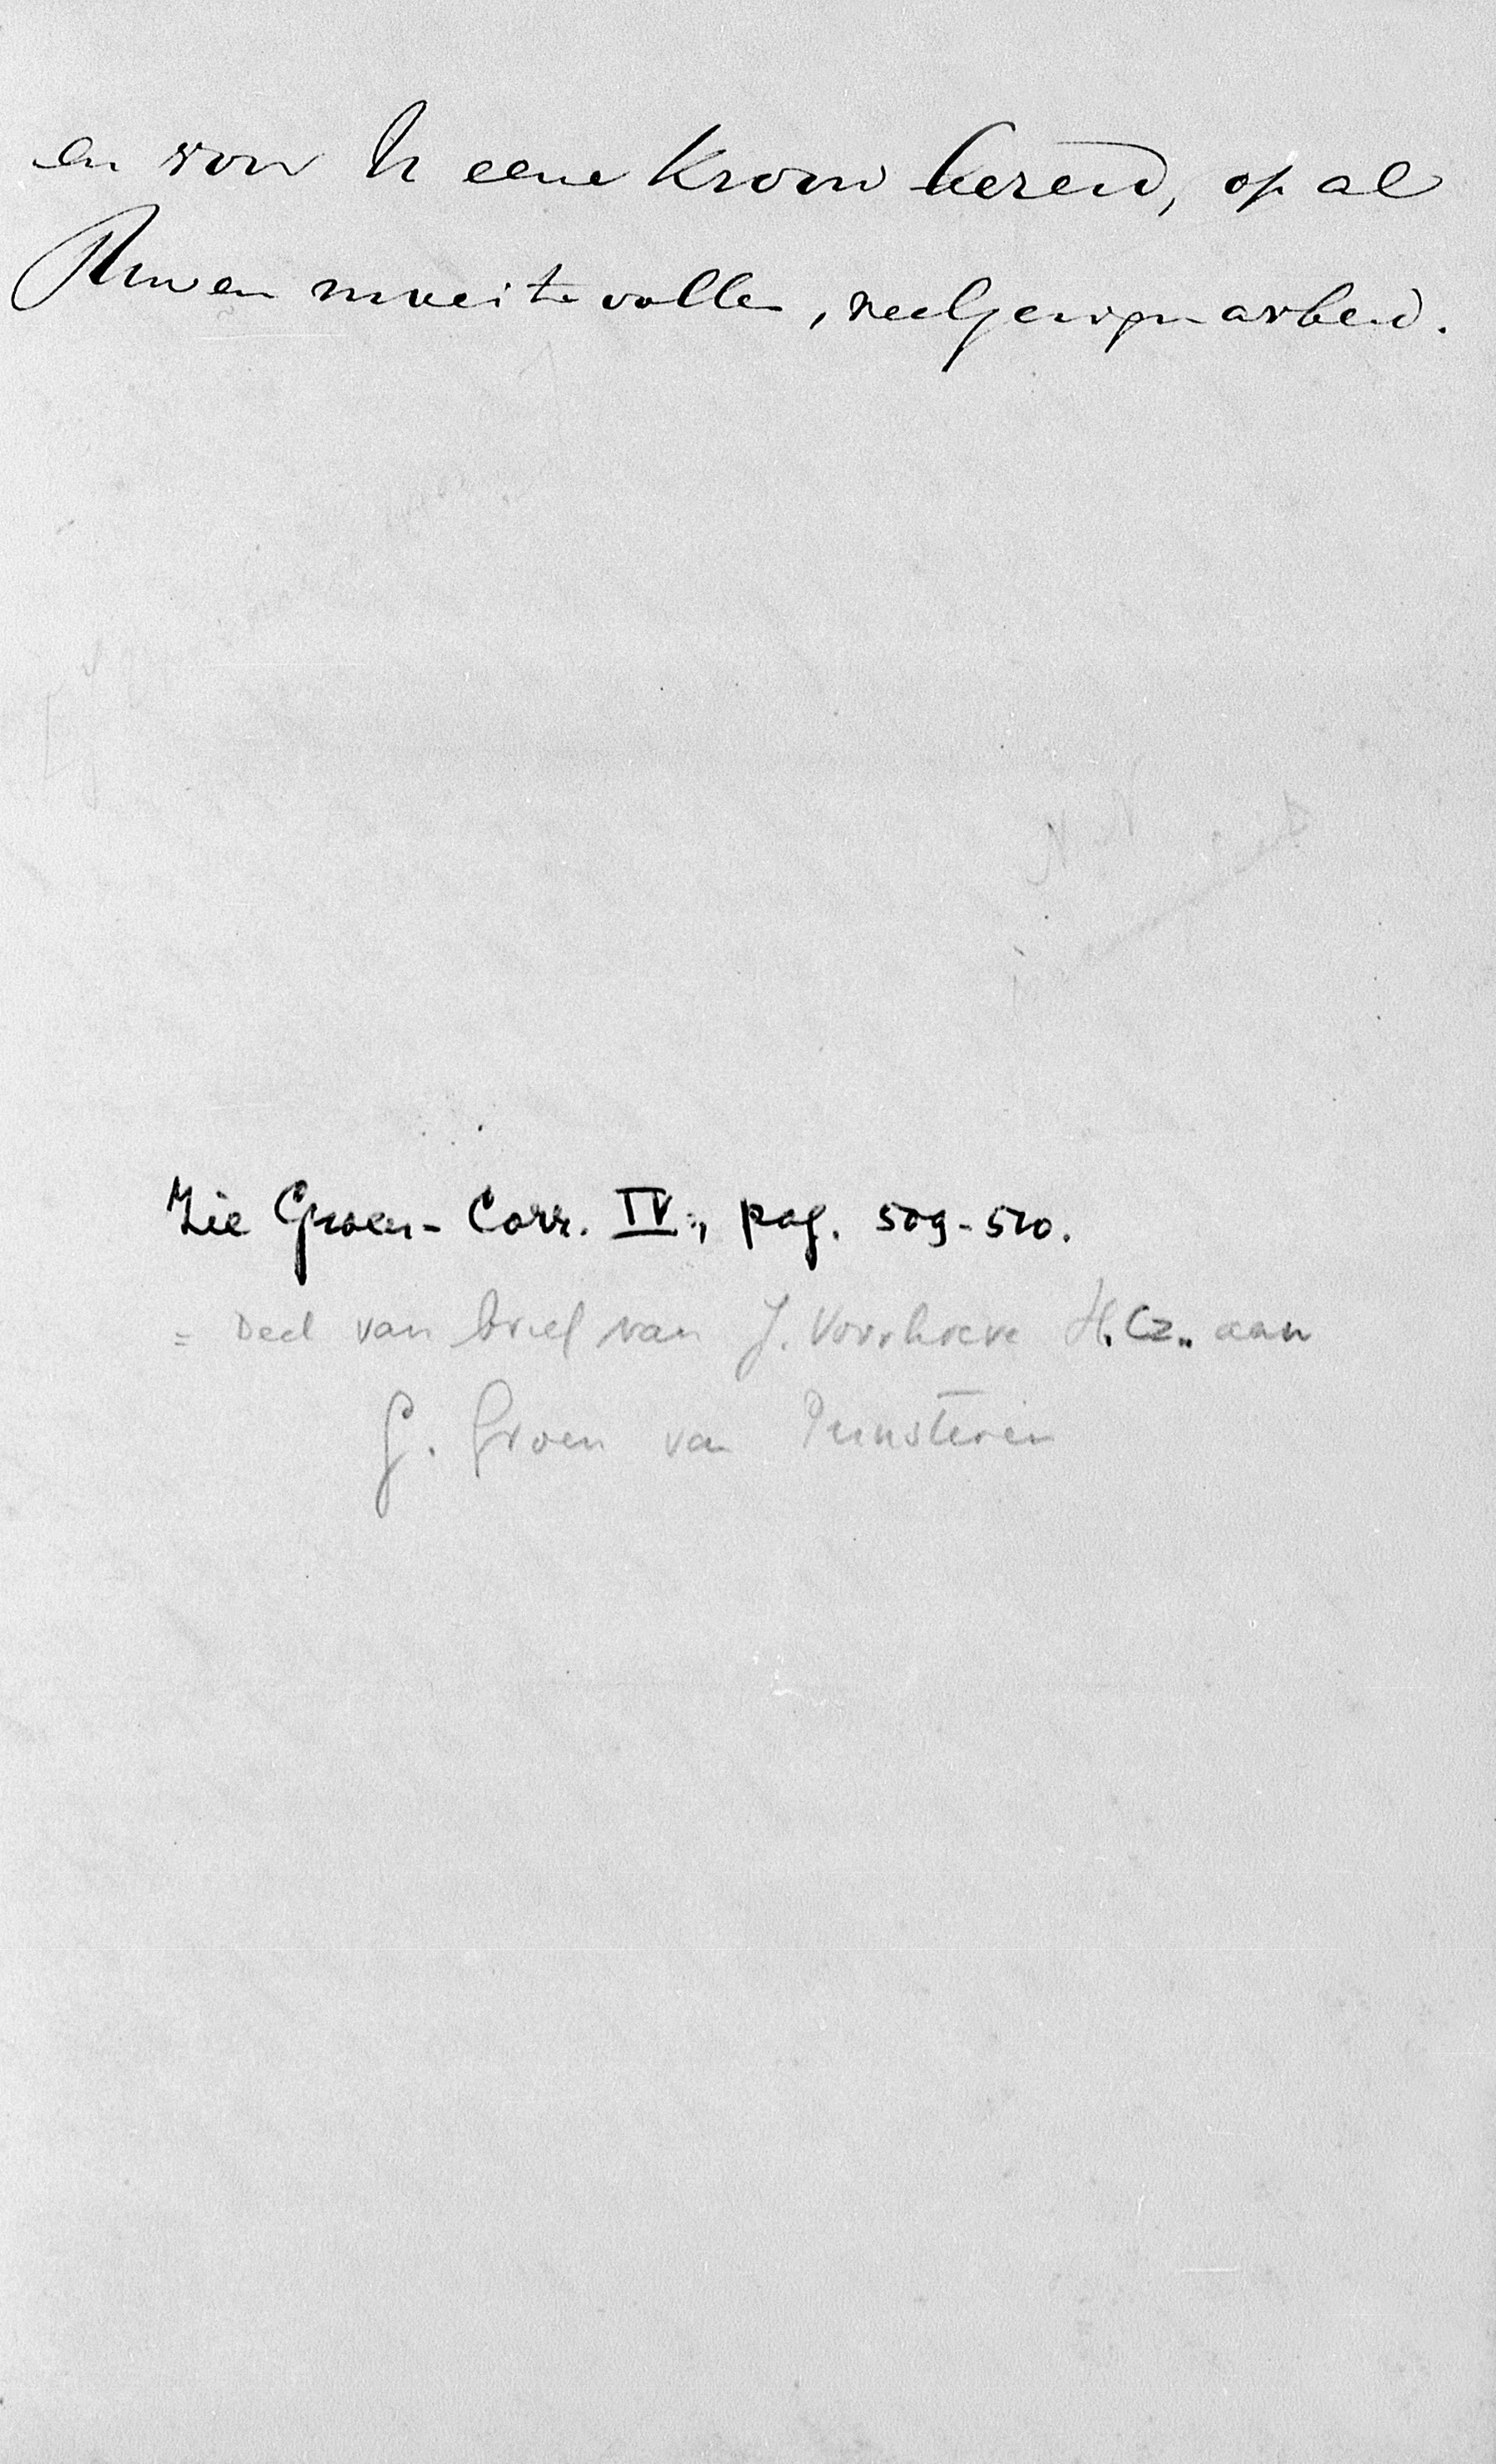 en voor U eene Kroon bereid, op al
Uwen moeitevollen, veeljarigen arbeid.
Zie Groen-Corr. IV, pag. 509-510.
= Deel van brief van J. Voorhoeve H.Cz. aan
G. Groen van Prinsterer